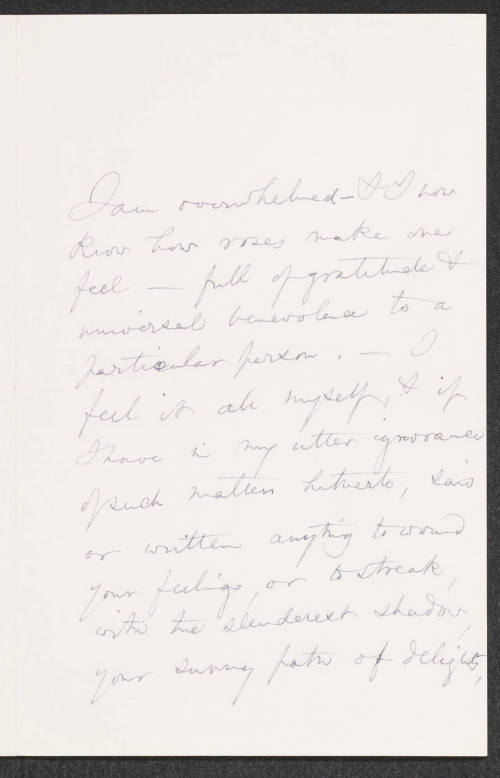 I am overwhelmed — & I now
know how roses make one
feel — full of gratitude &
universal benevolence to a
particular person. — I
feel it all myself, & if
I have in my utter ignorance
of such matters hitherto, said
or written anything to wound
your feelings, or to streak,
with the slenderest shadow,
your sunny path of delights,